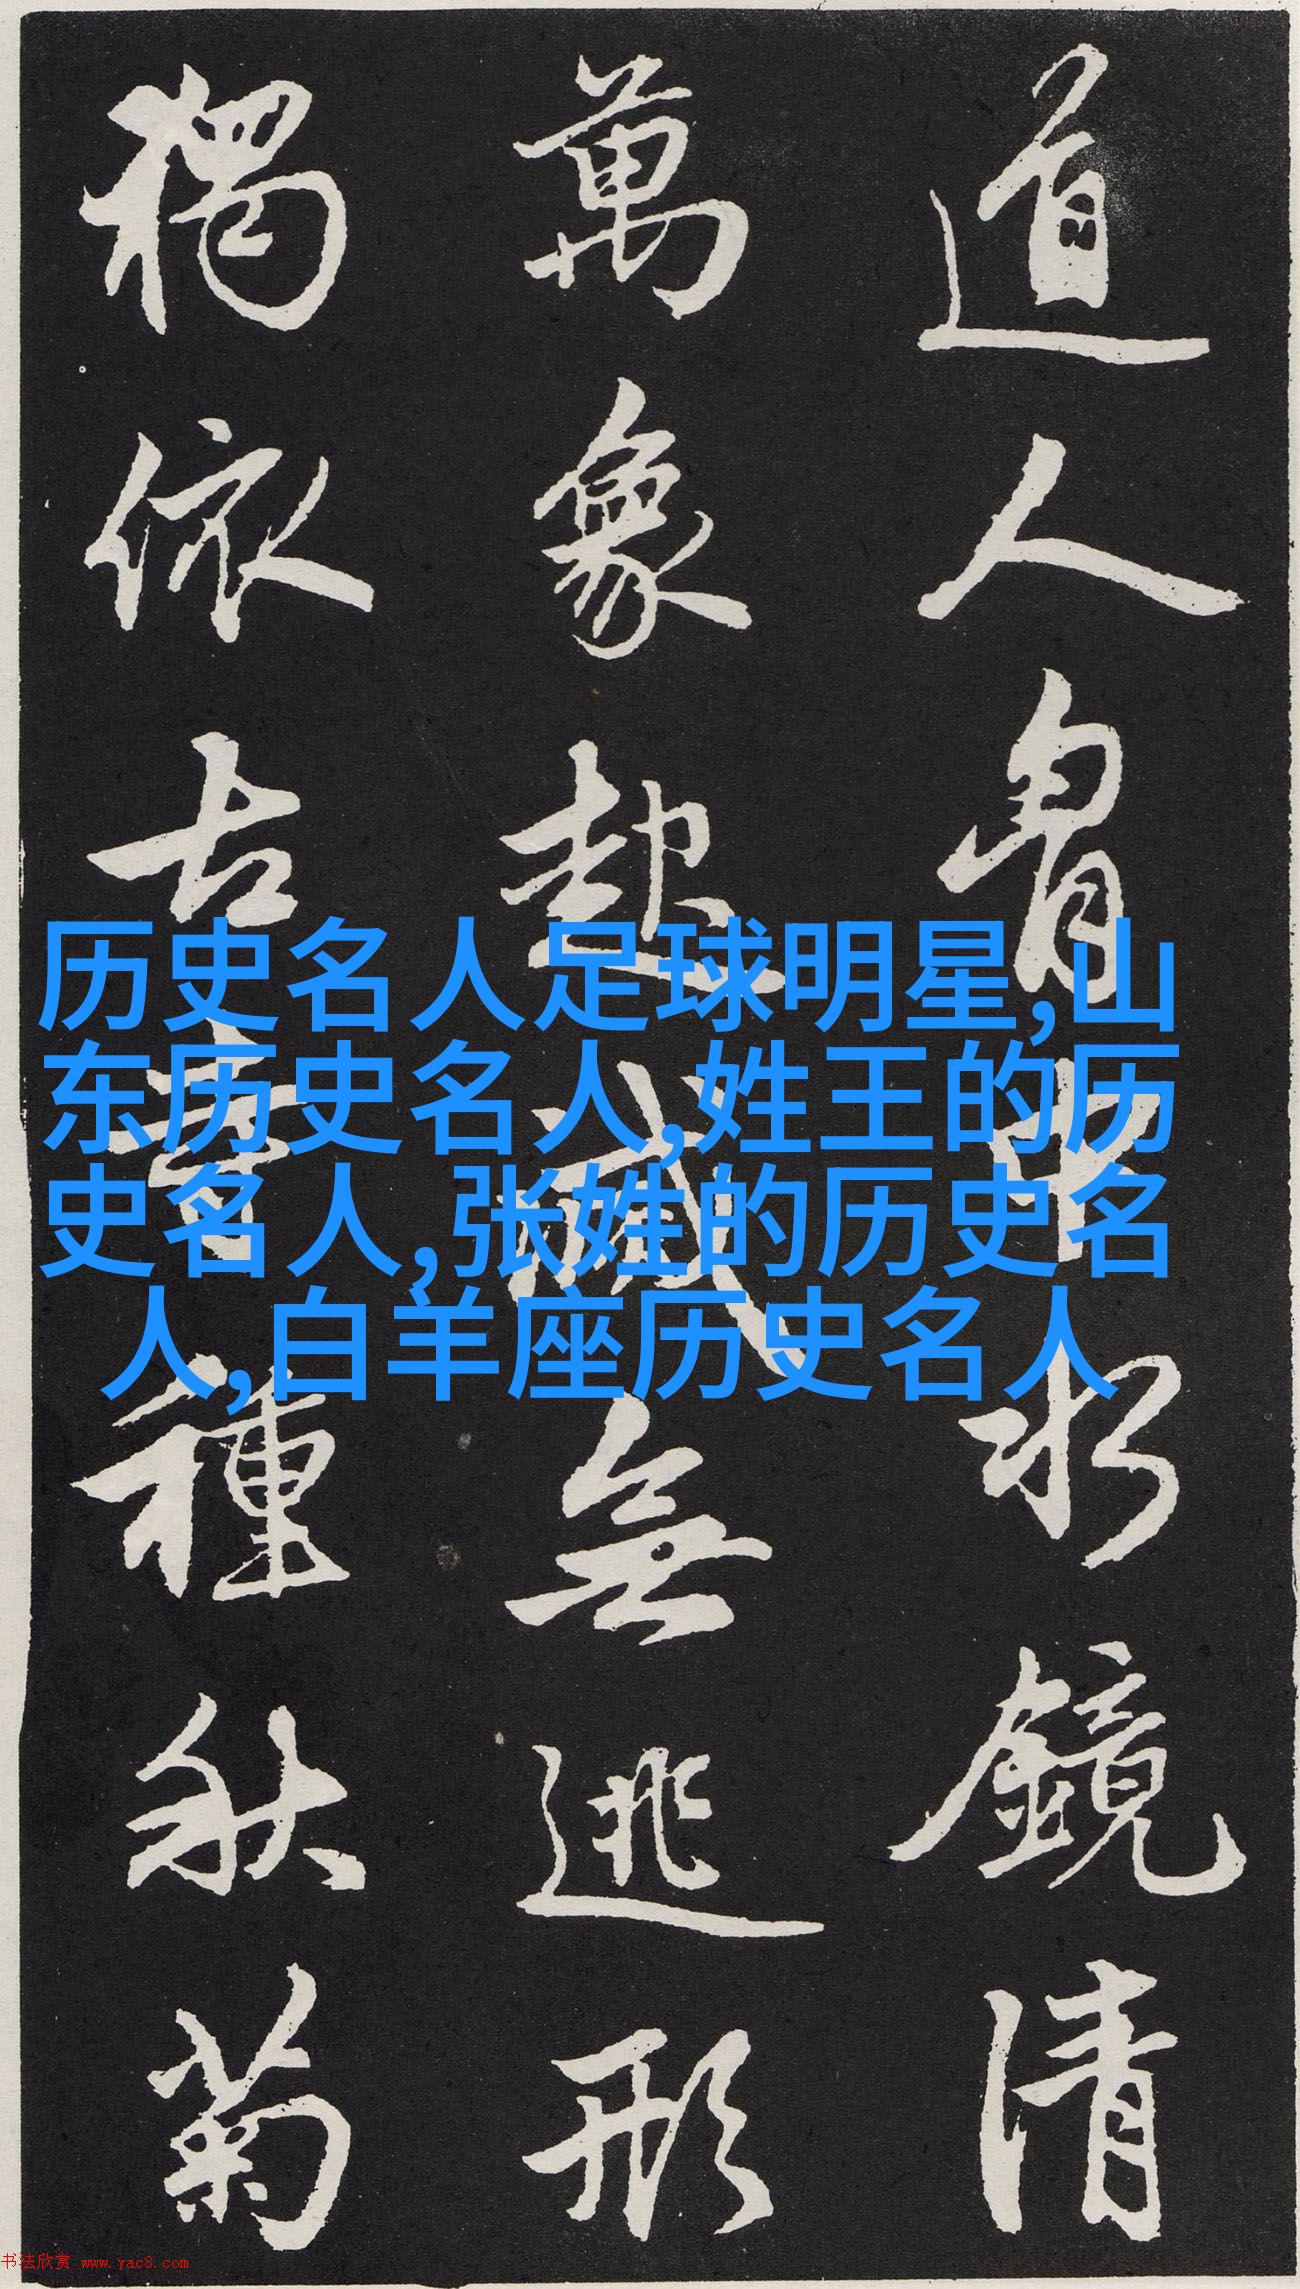 道人胷中水鏡清
萬象起滅無逃形
獨依古寺種秋菊
历史名人足球明星,山
东历史名人,姓王的历
史名人,张姓的历史名
人,白羊座历史名人
书法欣赏 www.yac8.com